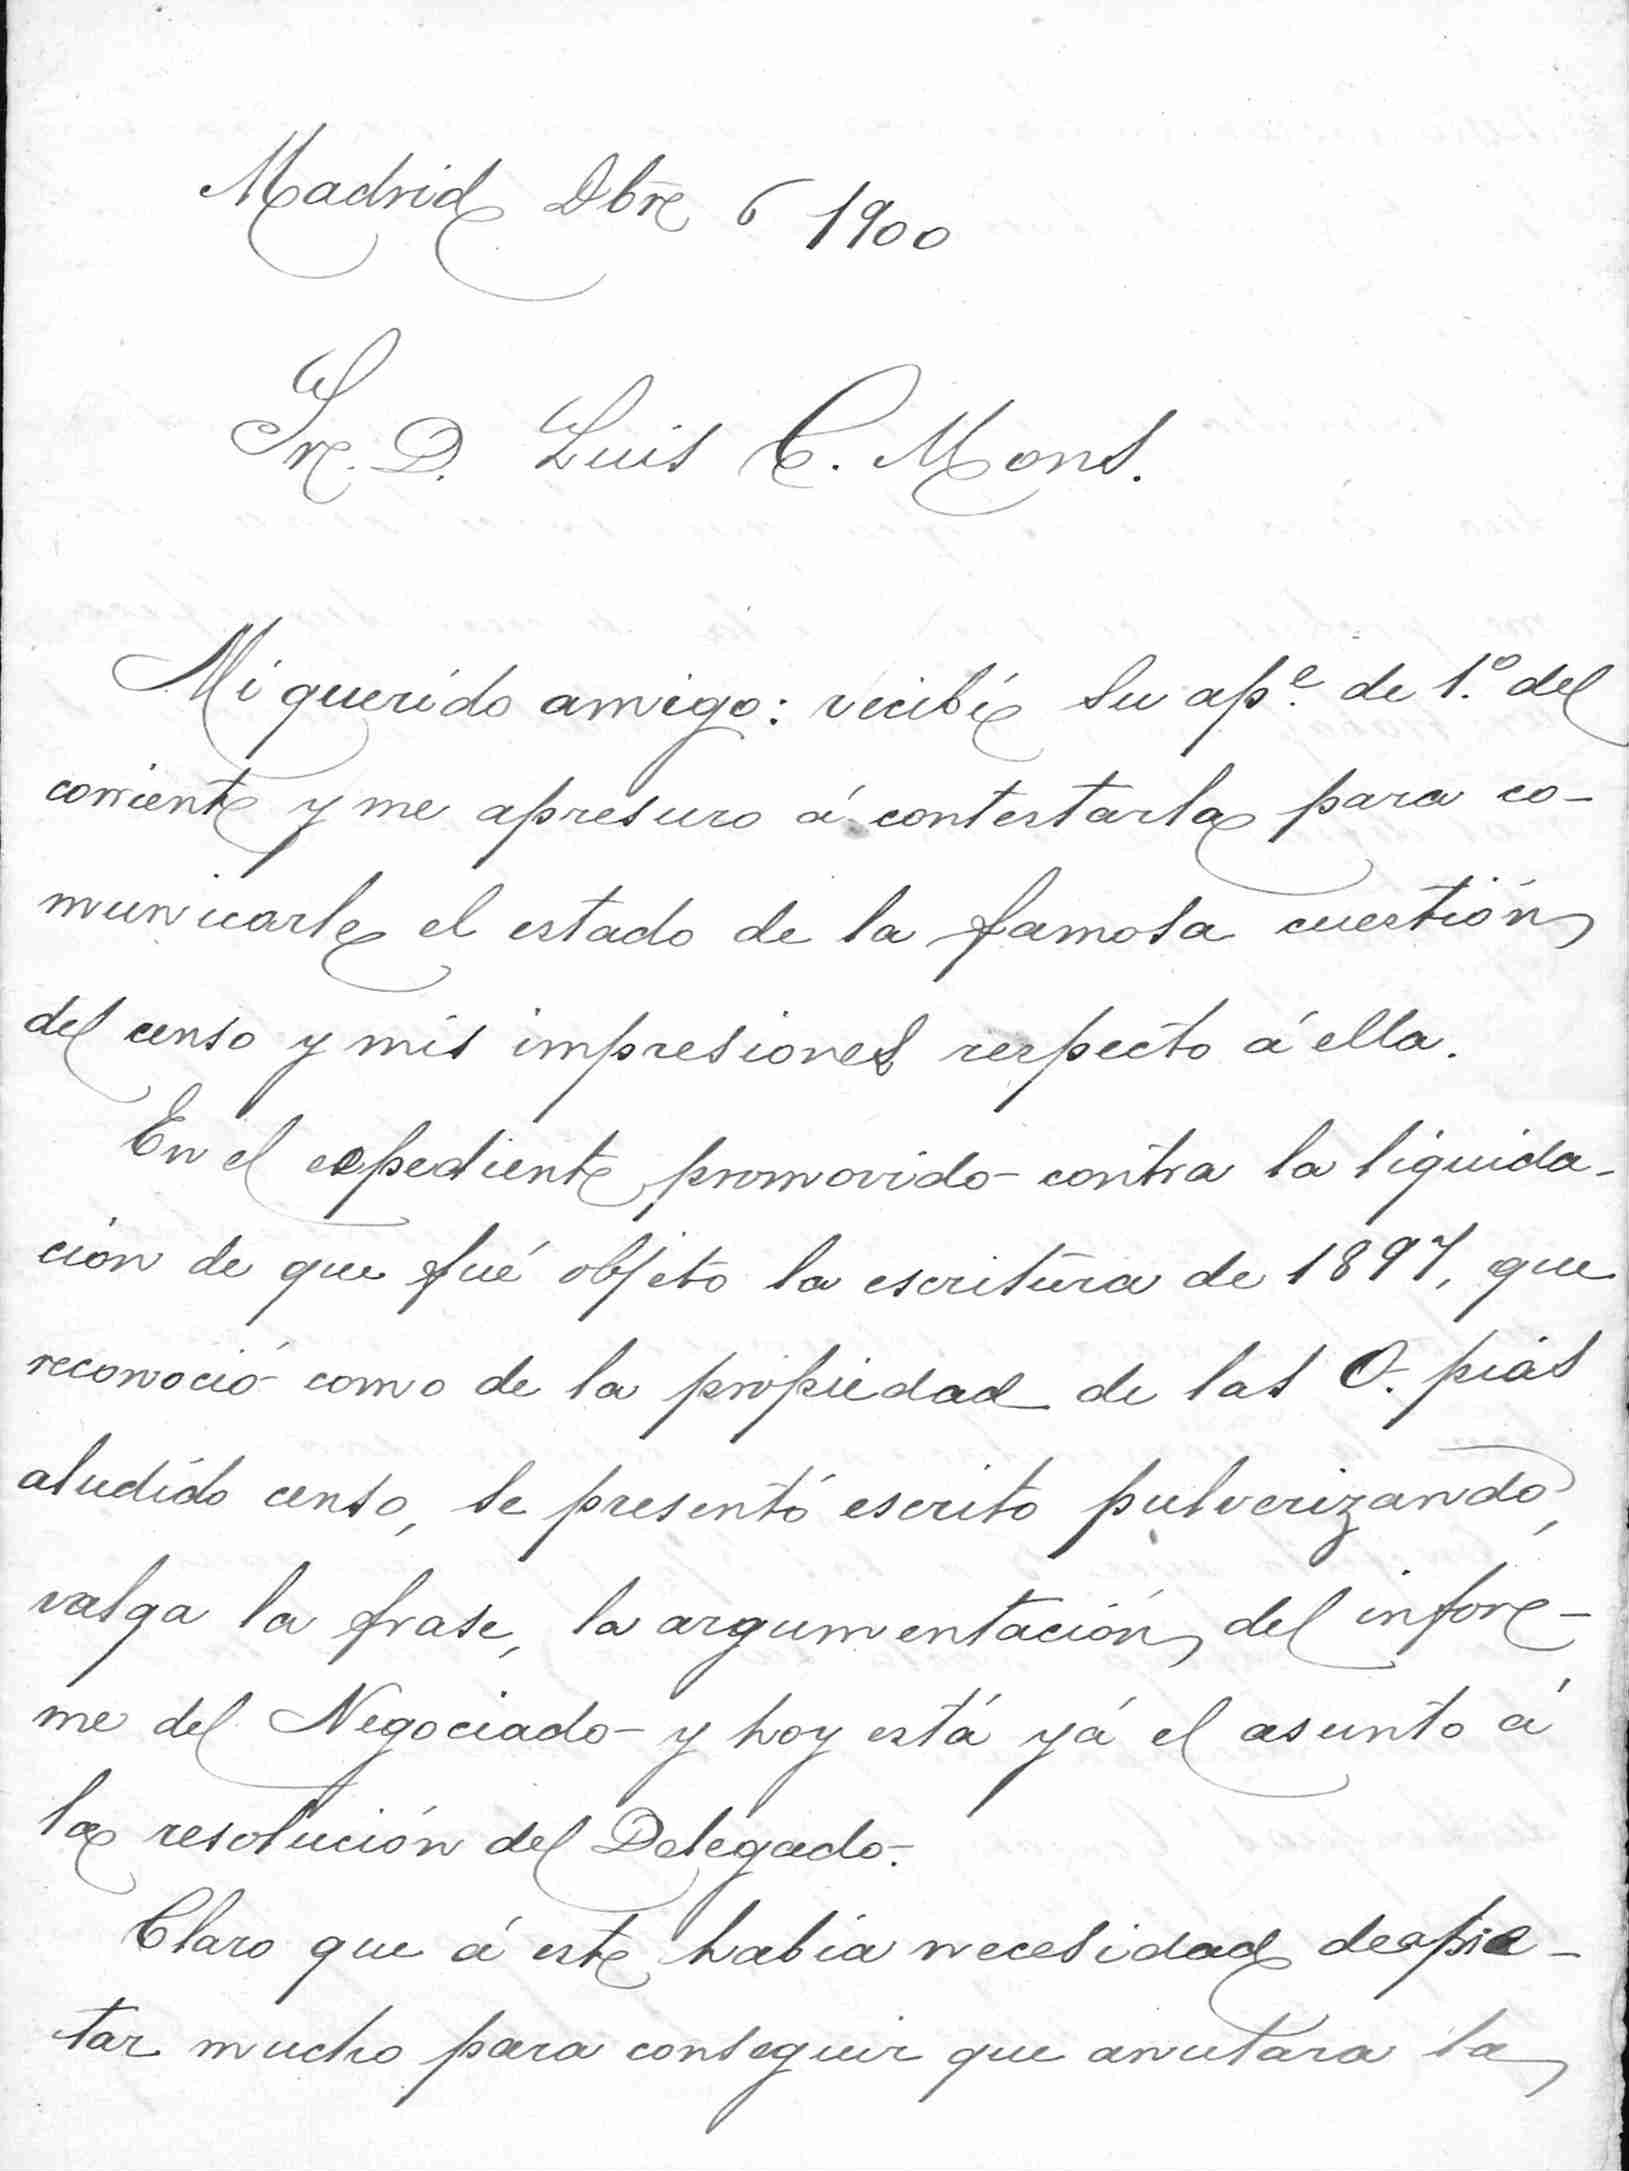 Madrid Dbre 6 1900
Sr. D. Luis C. Mons.
Mi querido amigo: recibí su ape. de 1.º del
corriente y me apresuro á contestarla para co-
municarle el estado de la famosa cuestión
del censo y mis impresiones respecto á ella.
En el expediente promovido contra la liquida-
ción de que fué objeto la escritura de 1897, que
reconoció como de la propiedad de las O. pias
aludido censo, se presentó escrito pulverizando,
valga la frase, la argumentación del infor-
me del Negociado y hoy está yá el asunto á
la resolución del Delegado.
Claro que á este habia necesidad de apre-
tar mucho para conseguir que anulara la